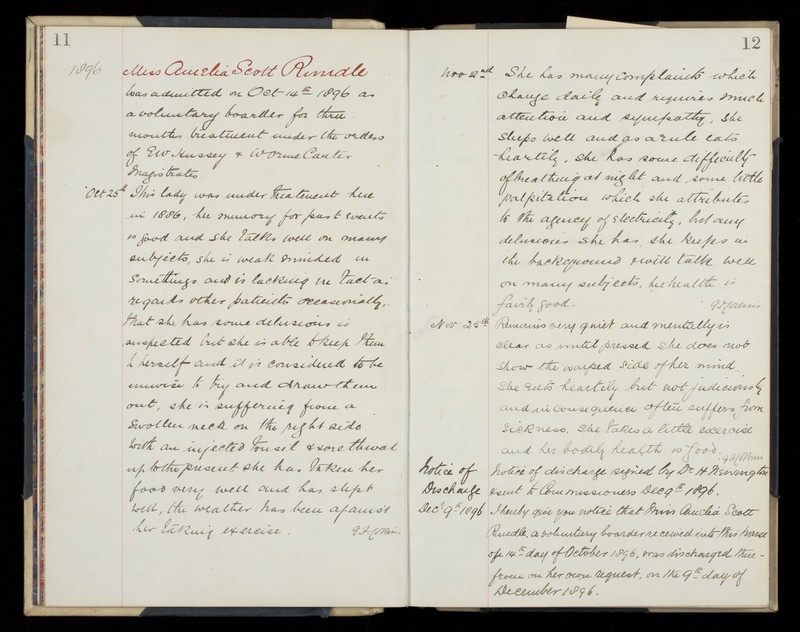 11
1896 Miss Amelia Scott Rundle
Was admitted on Oct 14th 1896 as
a voluntary boarder for three
months treatment under the orders
of EW Hussey & W Orme Carter
Magistrates
Oct 25th This lady was under treatment here
in 1886, her memory for past events
is good and she talks well on many
subjects, she is weak minded in
somethings and is lacking in tact as
regards other patients occasionally,
that she has some delusions is
suspected but she is able to keep them
to herself and it is considered to be
unwise to try and draw them
out, she is suffering from a
swollen neck on the right side
with an injected tonsil & sore throat
up to the present she has taken her
food very well and has slept
well, the weather has been against
her taking exercise.
12
Nov 2nd She has many complaints which
change daily and requires much
attention and sympathy, she
sleeps well and as a rule eats
heartily, she has some difficulty
of breathing at night and some little
palpitation which she attributes
to the agency of electricity, but any
delusions she has, she keeps in
the background & will talk well
on many subjects, her health is
fairly good.
Nov 25th Remains very quiet and mentally is
clear as until pressed she does not
show the warped side of her mind
She eats heartily but not judiciously
and in consequence often suffers from
sickness. She takes a little exercise
and her bodily health is good.
Notice of Notice of discharge signed by Dr H
Discharge & sent to Commissioners Dec 9th 1896.
Decr 9th 1896 I hereby give you notice that Miss Amelia Scott
Rundle, a voluntary boarder received into this house
on 14th day of October 1896, was discharged there-
from on her own request, on the 9th day of
December 1896.